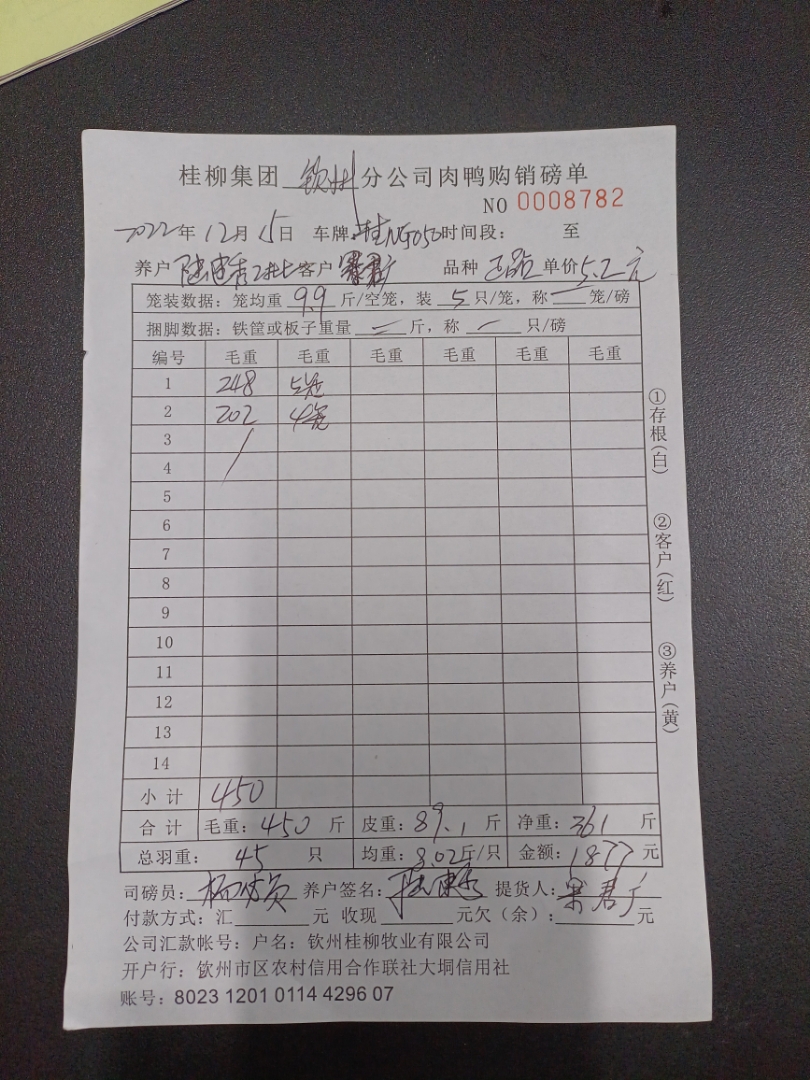 桂柳集团 钦州 分公司肉鸭购销磅单
NO 0008782
2022年12月15日 车牌: 时间段: 至
养户 客户 品种 单价5.2元
笼装数据: 笼均重 9.9 斤/空笼, 装 5 只/笼, 称 一 笼/磅
捆脚数据: 铁筐或板子重量 一 斤, 称 一 只/磅
编号 毛重 毛重 毛重 毛重 毛重 毛重
1 248 5笼
2 202 4笼
3
4
5
6
7
8
9
10
11
12
13
14
小计 450
合计 毛重: 450 斤 皮重: 89.1 斤 净重: 361 斤
总羽重: 45 只 均重: 8.02斤/只 金额: 1877元
司磅员: 养户签名: 提货人:
付款方式: 汇 元 收现 元欠(余): 元
公司汇款帐号: 户名: 钦州桂柳牧业有限公司
开户行: 钦州市区农村信用合作联社大垌信用社
账号: 8023 1201 0114 4296 07
①存根(白)
②客户(红)
③养户(黄)